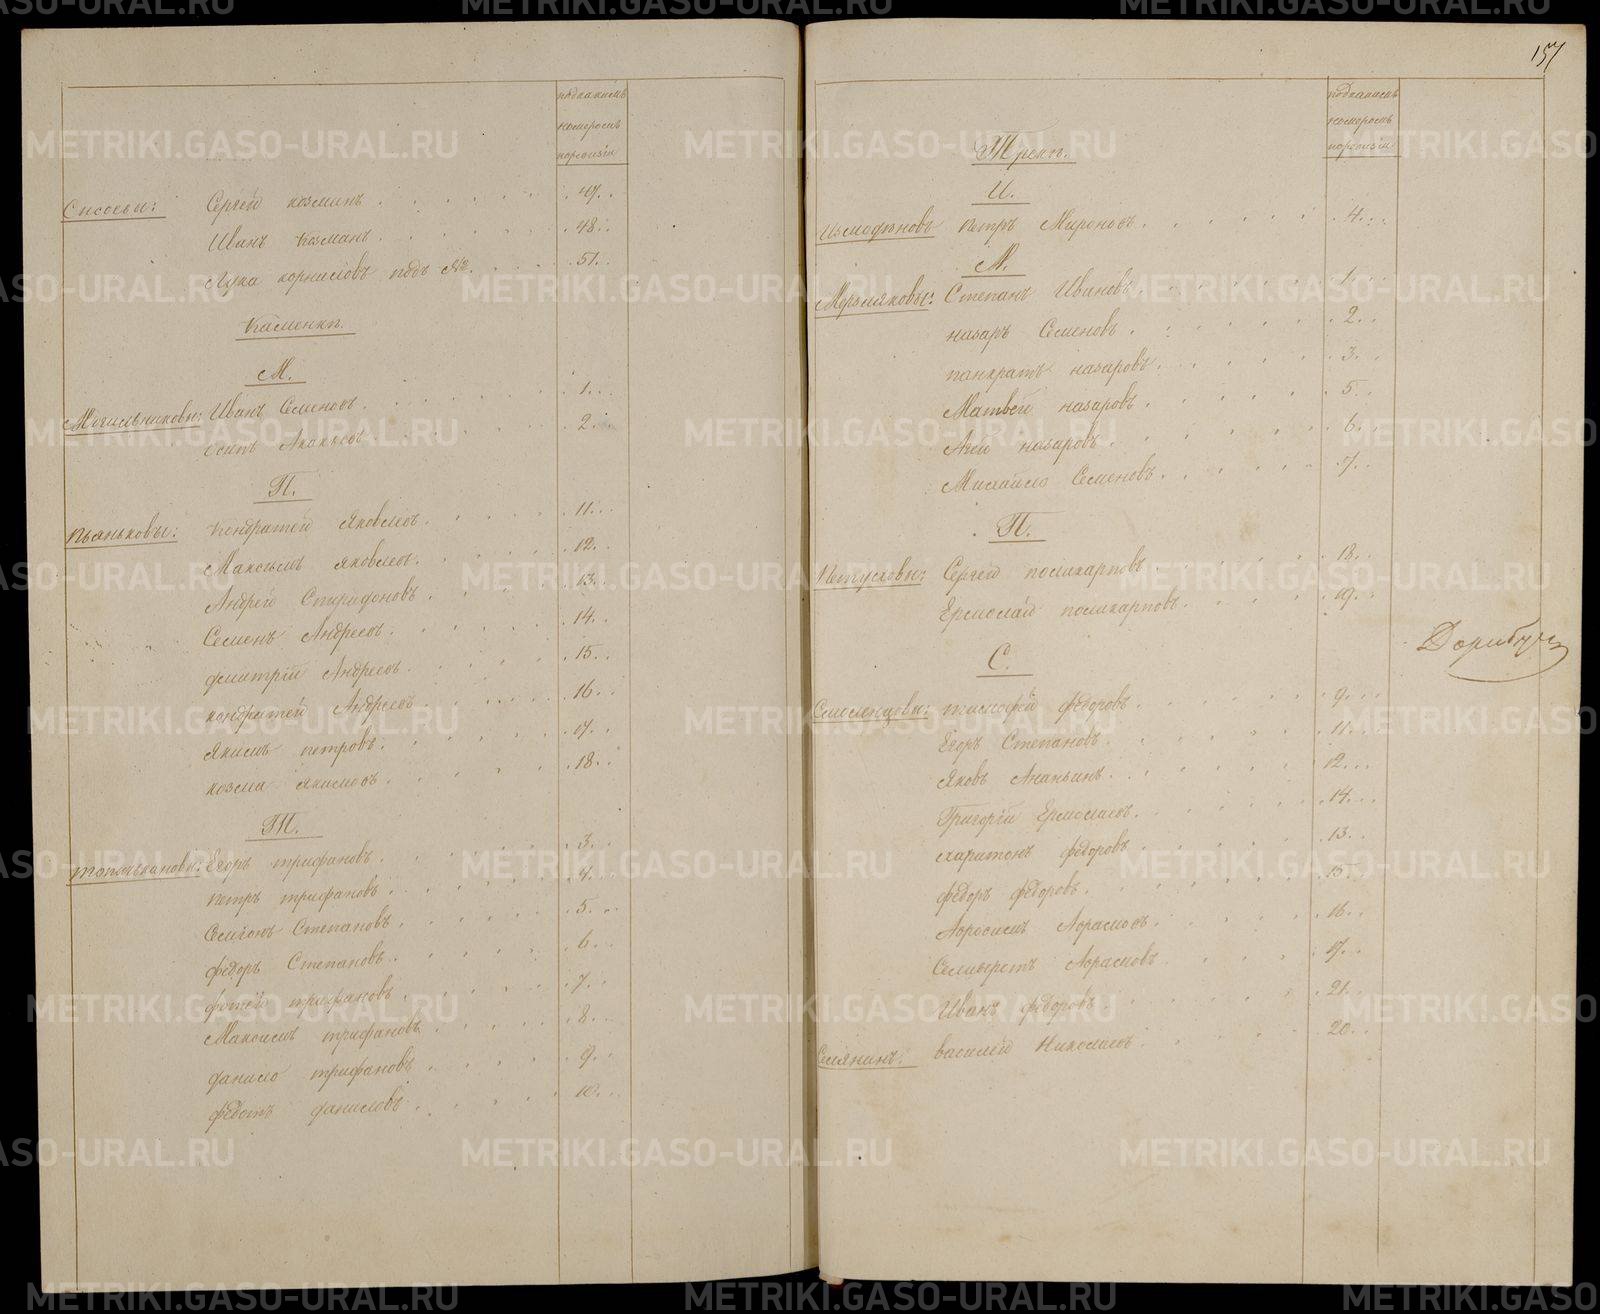 подкакимъ
номеромъ
поревизiи
Сысоевы: Сергей козминъ 47.
Иванъ Козманъ. 48.
Лука корниловъ подъ №. 51.
Каменки.
М.
Могильниковы: Иванъ Семеновъ. 1.
Осипъ 2.
П.
Пьянковы: Кондратей Яковлевъ. 11.
Максимъ яковлевъ. 12.
Андрей Спиридоновъ 13.
Семенъ Андреевъ. 14.
дмитрiй Андреевъ 15.
кондратей Андреевъ 16.
Якимъ петровъ. 17.
козма якимовъ. 18.
Т.
Егоръ трифановъ. 3.
Петръ трифановъ 4.
Семенъ Степановъ 5.
федоръ Степановъ. 6.
фотей трифановъ. 7.
Максимъ трифановъ. 8.
данило трифановъ 9.
федотъ даниловъ. 10.
157
подкакимъ
номеромъ
поревизiи
Треки.
И.
Измоденовъ Петръ Мироновъ. 4.
М.
Мерзляковы: Степанъ Ивановъ. 1.
назаръ Семеновъ. 2.
панкратъ назаровъ. 3.
Матвей назаровъ. 5.
Агей назаровъ. 6.
Михайло Семеновъ. 7.
П.
Петуховы: Сергей поликарповъ 18.
Ермолай поликарповъ. 19.
С.
Смоленцовы: тимофей федоровъ. 9.
Егоръ Степановъ. 11.
Яковъ Ананьинъ. 12.
Григорiй Ермолаевъ. 14.
харитонъ федоровъ 13.
федоръ федоровъ. 15.
Абросимъ Абрамовъ. 16.
Селиверстъ Абрамовъ. 17.
Иванъ федоровъ 21.
Селянинъ: василей Николаевъ. 20.